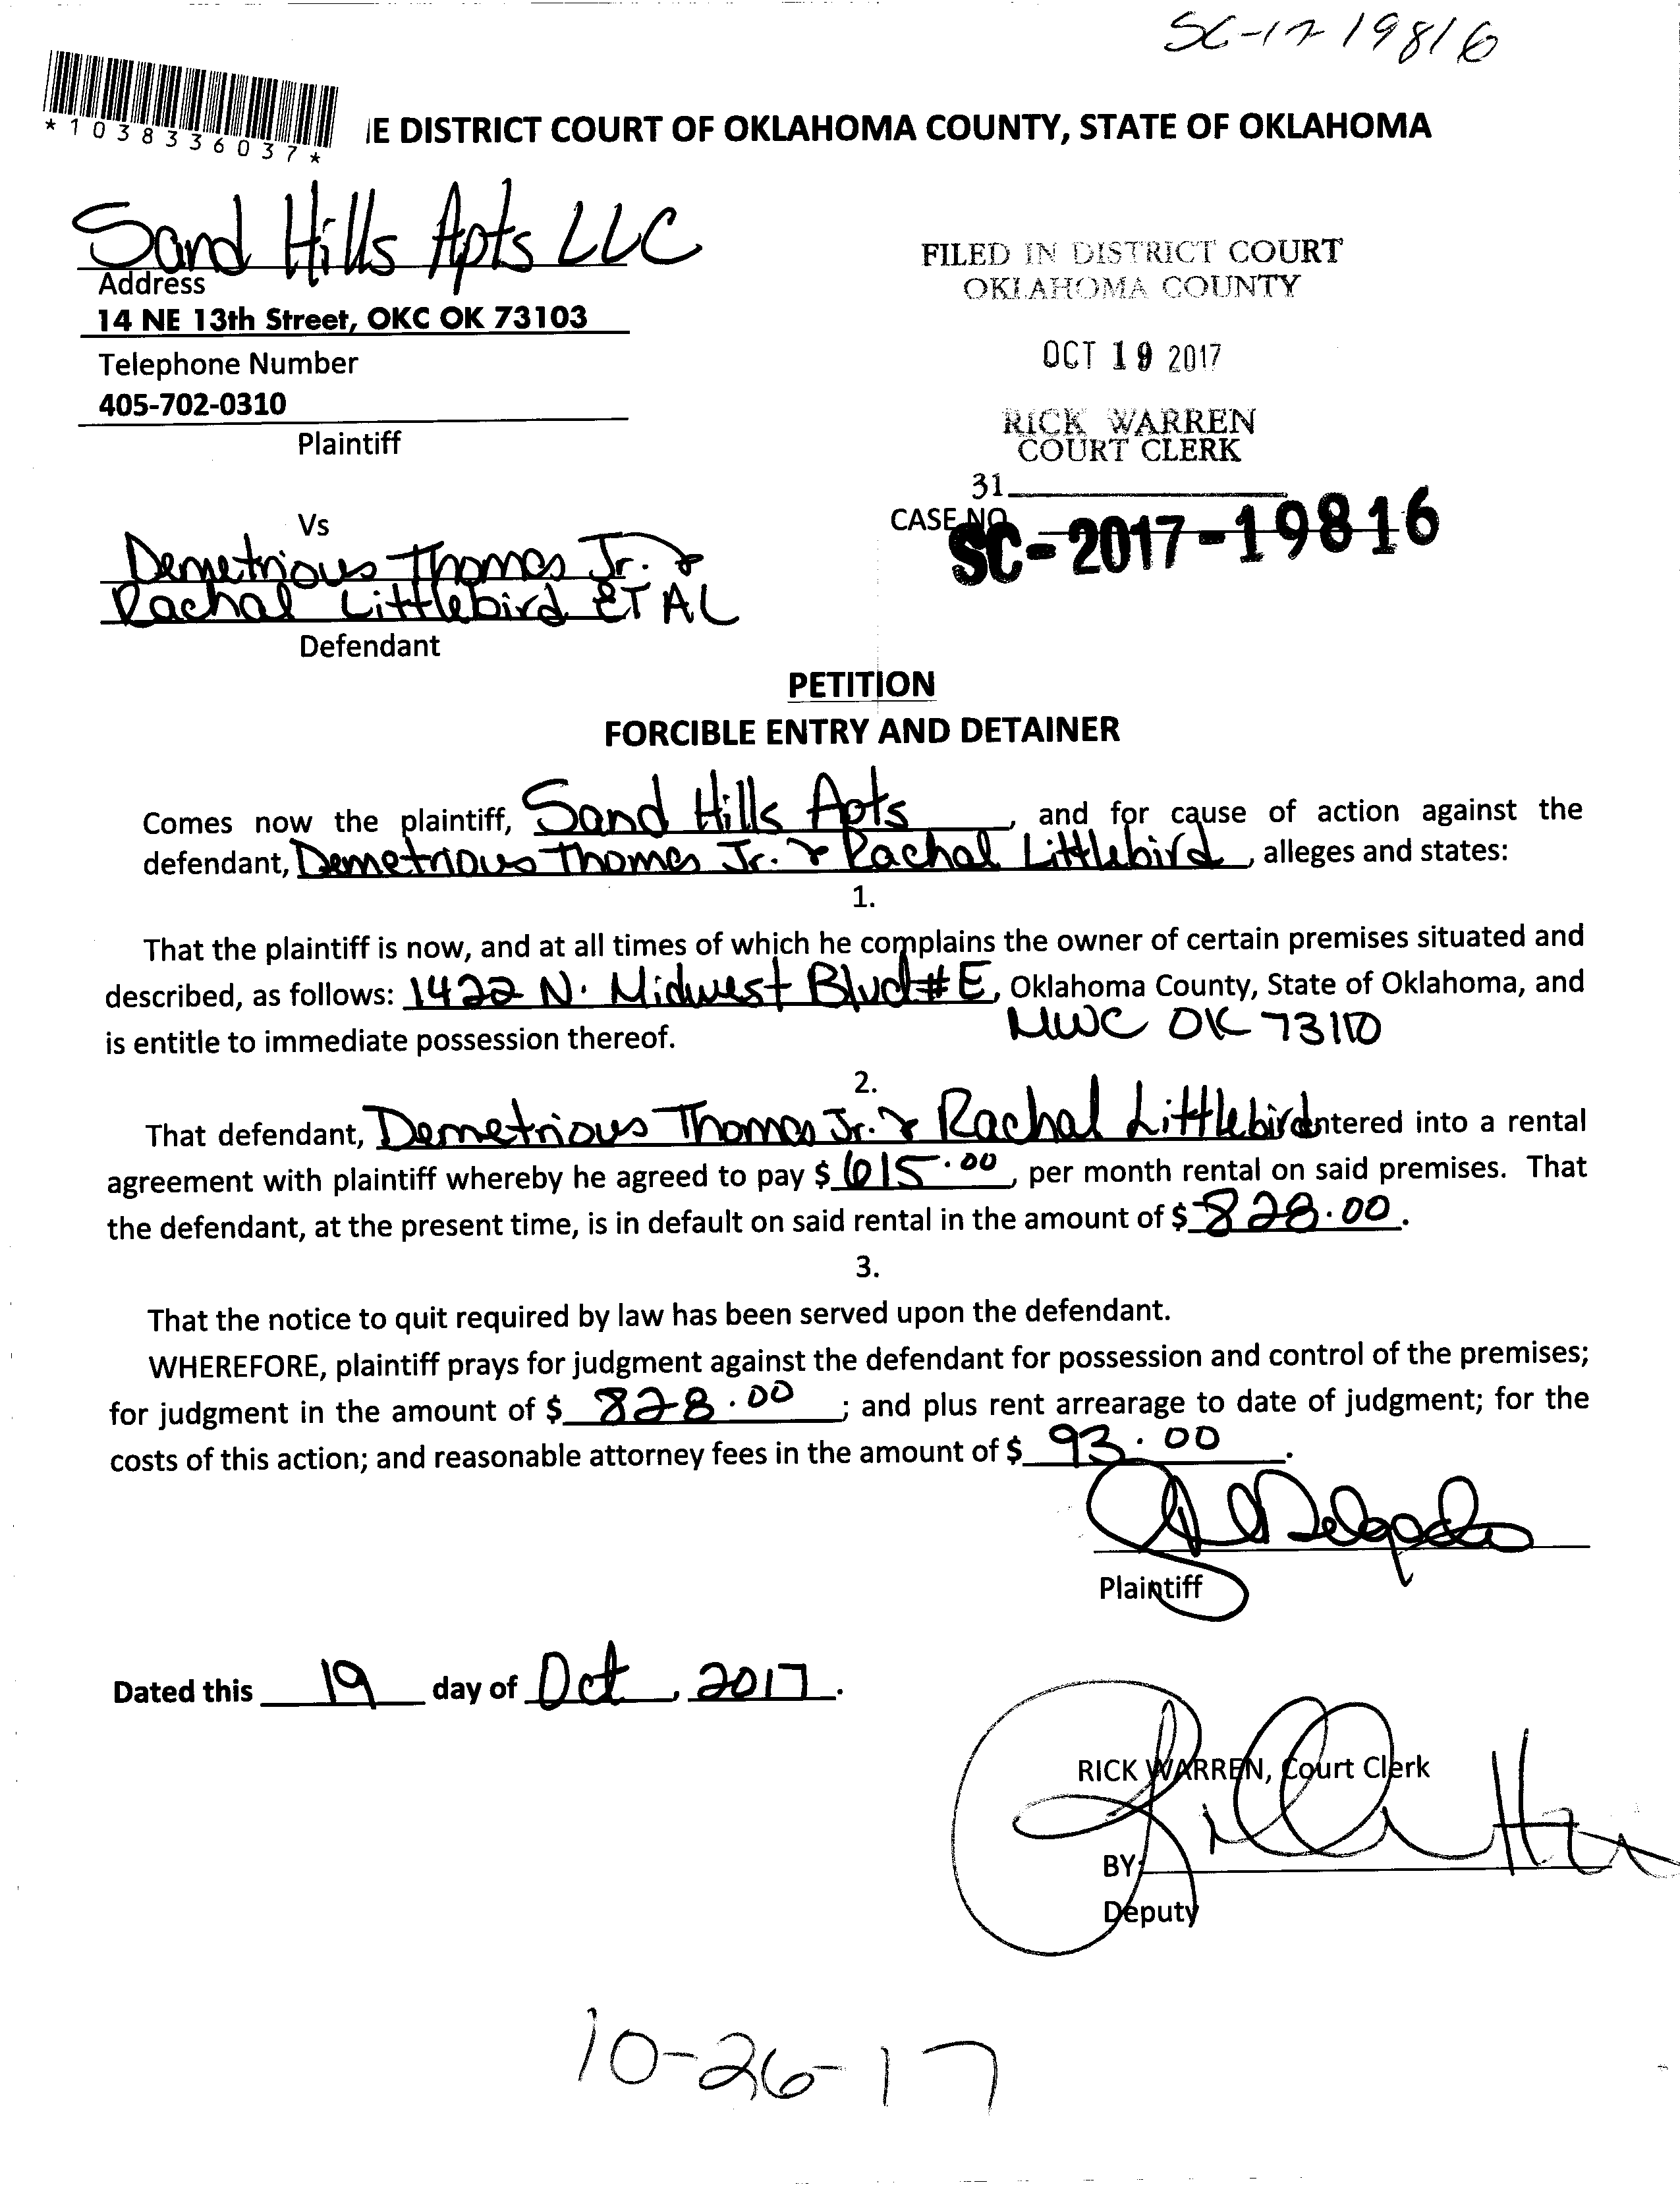 SC-17-19816
*1038336037*
IE DISTRICT COURT OF OKLAHOMA COUNTY, STATE OF OKLAHOMA
Sand Hills Apts LLC
Address
14 NE 13th Street, OKC OK 73103
Telephone Number
405-702-0310
Plaintiff
FILED IN DISTRICT COURT
OKLAHOMA COUNTY
OCT 19 2017
RICK WARREN
COURT CLERK
31
CASE NO.
SC-2017-19816
Vs
Demetrious Thomas Jr. &
Rachal Littlebird ET AL
Defendant
PETITION
FORCIBLE ENTRY AND DETAINER
Comes now the plaintiff, Sand Hills Apts, and for cause of action against the
defendant, Demetrious Thomas Jr. & Rachal Littlebird, alleges and states:
1.
That the plaintiff is now, and at all times of which he complains the owner of certain premises situated and
described, as follows: 1422 N. Midwest Blvd #E, Oklahoma County, State of Oklahoma, and
is entitle to immediate possession thereof. MWC OK 73110
2.
That defendant, Demetrious Thomas Jr. & Rachal Littlebird entered into a rental
agreement with plaintiff whereby he agreed to pay $ 615.00, per month rental on said premises. That
the defendant, at the present time, is in default on said rental in the amount of $ 828.00.
3.
That the notice to quit required by law has been served upon the defendant.
WHEREFORE, plaintiff prays for judgment against the defendant for possession and control of the premises;
for judgment in the amount of $ 828.00; and plus rent arrearage to date of judgment; for the
costs of this action; and reasonable attorney fees in the amount of $ 93.00.
Delgado
Plaintiff
Dated this 19 day of Oct, 2017.
RICK WARREN, Court Clerk
BY:
Deputy
10-26-17